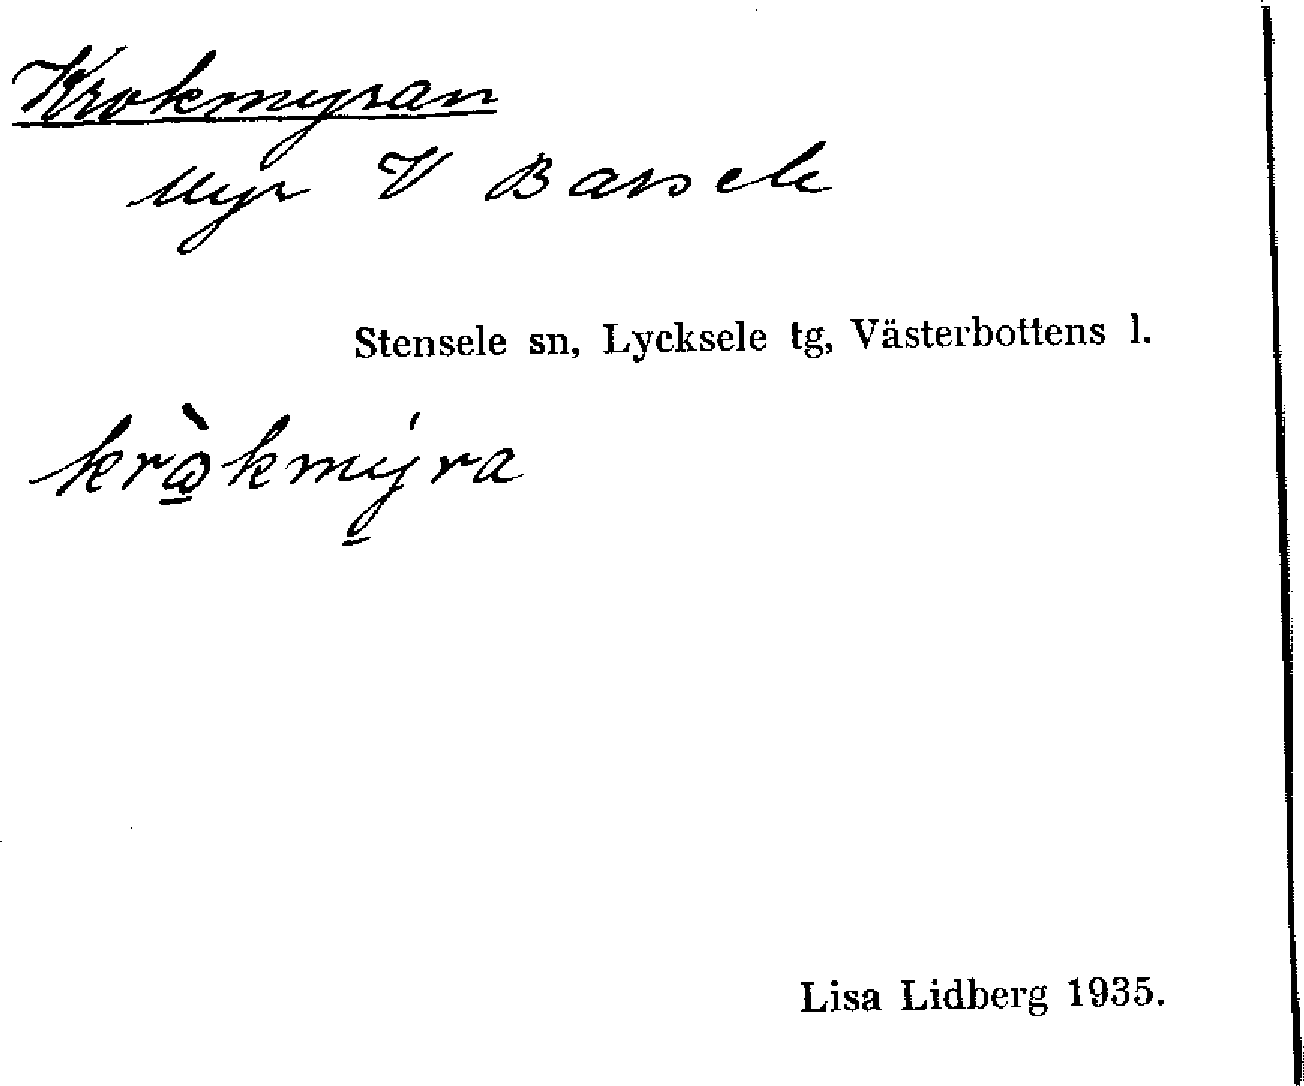 Krokmyran
Myr V Barsele
Stensele sn, Lycksele tg, Västerbottens l.
krò̱kmý̱ra
Lisa Lidberg 1935.